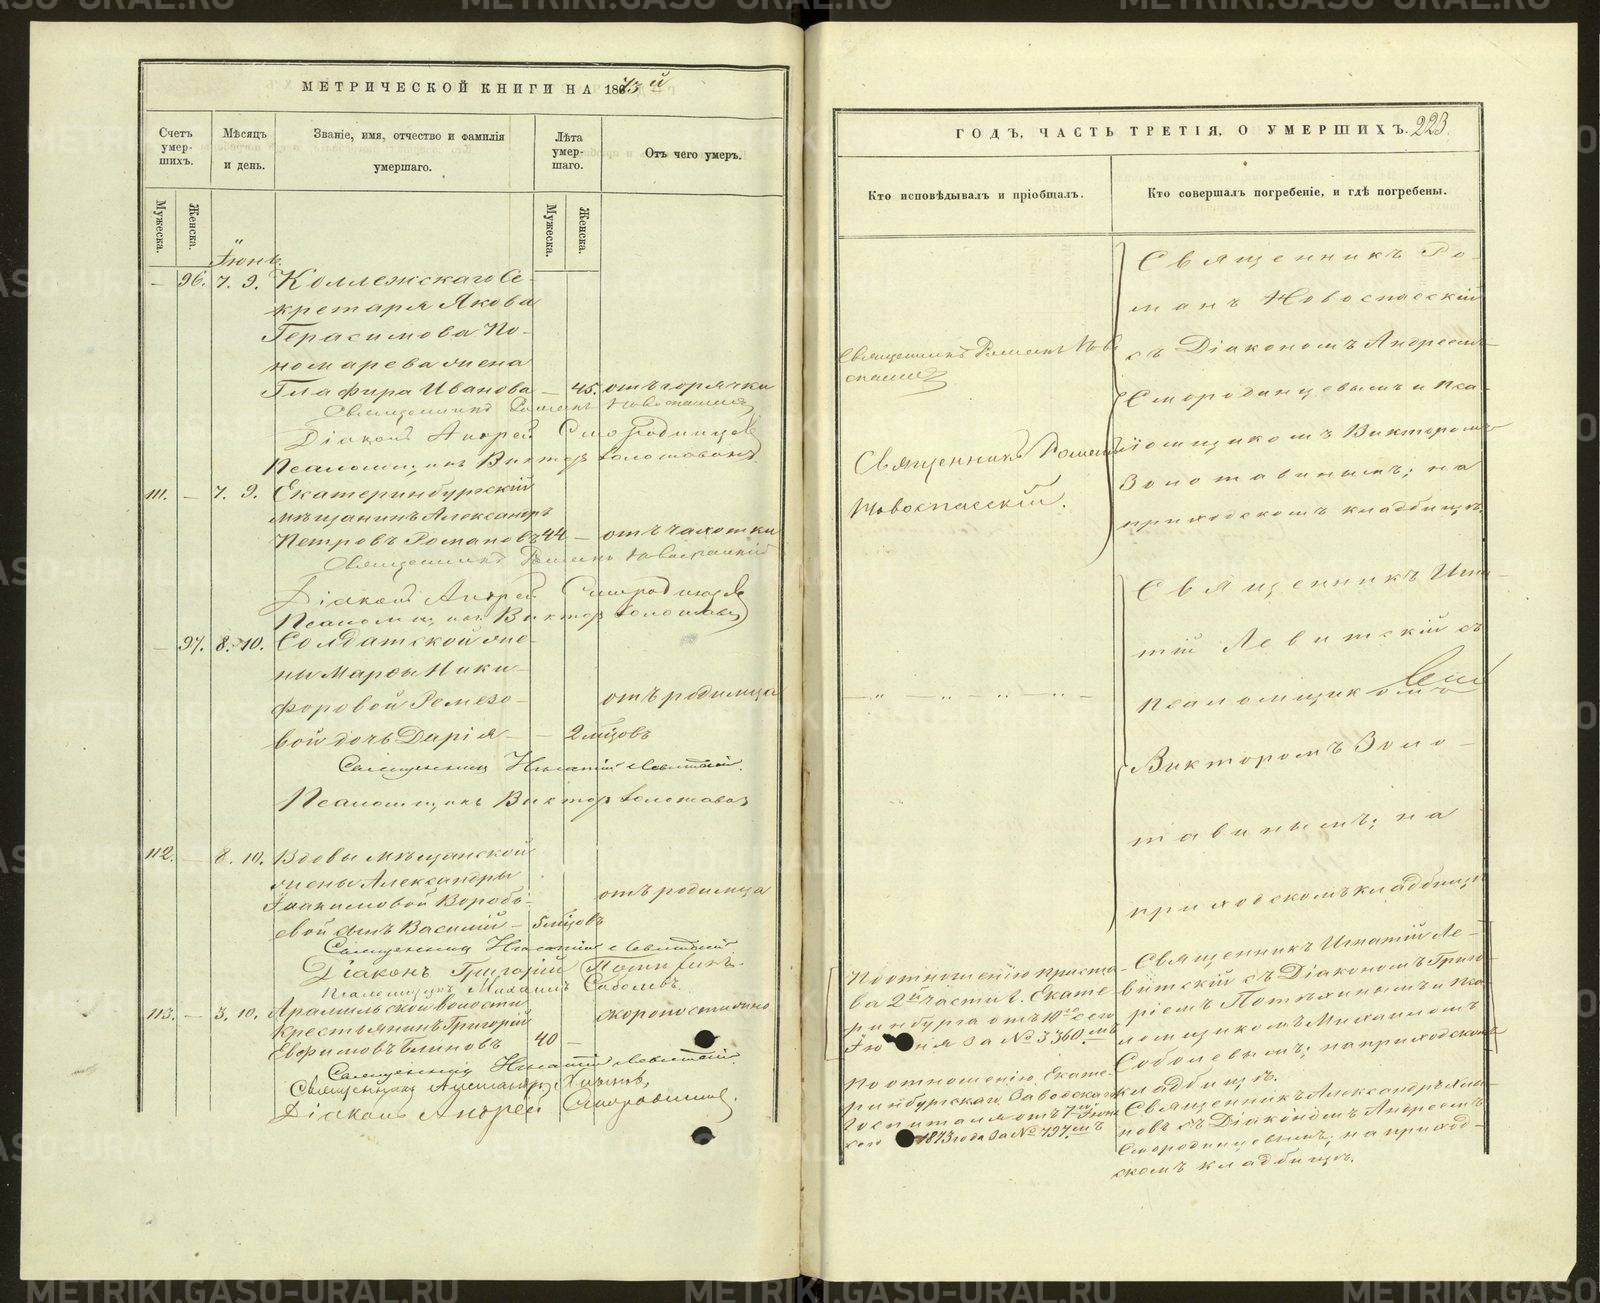 МЕТРИЧЕСКОЙ КНИГИ НА 1873й
Счетъ умершихъ.
Мѣсяцъ и день.
Званіе, имя, отчество и фамилія умершаго.
Лѣта умершаго.
Отъ чего умеръ.
Мужеска.
Женска.
Мужеска.
Женска.
Іюнь.
— 96. 7. 9. Коллежскаго Се-
кретаря Якова
Герасимова По-
номарева жена
Глафира Иванова — 45. отъ горячки
Священникъ Романъ Новоспасскій
Діаконъ Андрей Смородинцевъ
Псаломщикъ Викторъ Золотавинъ
111. — 7. 9. Екатеринбургскій
мѣщанинъ Александръ
Петровъ Романовъ 44 — отъ чахотки
Священникъ Романъ Новоспасскій
Діаконъ Андрей Смородинцевъ
Псаломщикъ Викторъ Золотавинъ
— 97. 8. 10. Солдатской же-
ны Марѳы Ники-
форовой Ромезо- отъ родимца
вой дочь Дарія — — 2 мѣсцовъ
Священникъ Игнатій Левитскій.
Псаломщикъ Викторъ Золотавинъ
112. — 8. 10. Вдовы мѣщанской
жены Александры
Іоакимовой Воробь- отъ родимца
евой сынъ Василій — 5 мѣсцовъ
Священникъ Игнатій Левитскій
Діаконъ Григорій Потѣхинъ.
Псаломщикъ Михаилъ Соболевъ.
113. — 3. 10. Арамильской волости скоропостижно
крестьянинъ Григорій
Евфимовъ Блиновъ 40 —
Священникъ Игнатій Левитскій.
Священникъ Александръ
Діаконъ Андрей Смородинцевъ.
ГОДЪ, ЧАСТЬ ТРЕТІЯ, О УМЕРШИХЪ. 223.
Кто исповѣдывалъ и пріобщалъ.
Кто совершалъ погребеніе, и гдѣ погребены.
Священникъ Романъ Ново
спасскій
Священникъ Романъ
Новоспасскій.
Священникъ Ро-
манъ Новоспасскій
съ Діакономъ Андреемъ
Смородинцевымъ и Пса-
ломщикомъ Викторомъ
Золотавинымъ; на
приходскомъ кладбищѣ.
— „ — „ — „ — „ —
Священникъ Игна-
тій Левитскій съ
псаломщикомъ
Викторомъ Золо-
тавинымъ; на
приходскомъ кладбищѣ
По отношенію приста-
ва 2й части г. Екате-
ринбурга отъ 10го сего
Іюня за № 3360.мъ
Священникъ Игнатій Ле-
витскій съ Діакономъ Григо-
ріемъ Потѣхинымъ и пса-
ломщикомъ Михаиломъ
Соболевымъ; на приходскомъ
кладбищѣ.
По отношенію Екате-
ринбургскаго Заводскаго
Госпиталя отъ 7го Іюня
сего 1873 года за № 797.мъ
Священникъ Александръ
съ Діакономъ Андреемъ
Смородинцевымъ; на приход-
скомъ кладбищѣ.
METRIKI.GASO-URAL.RU